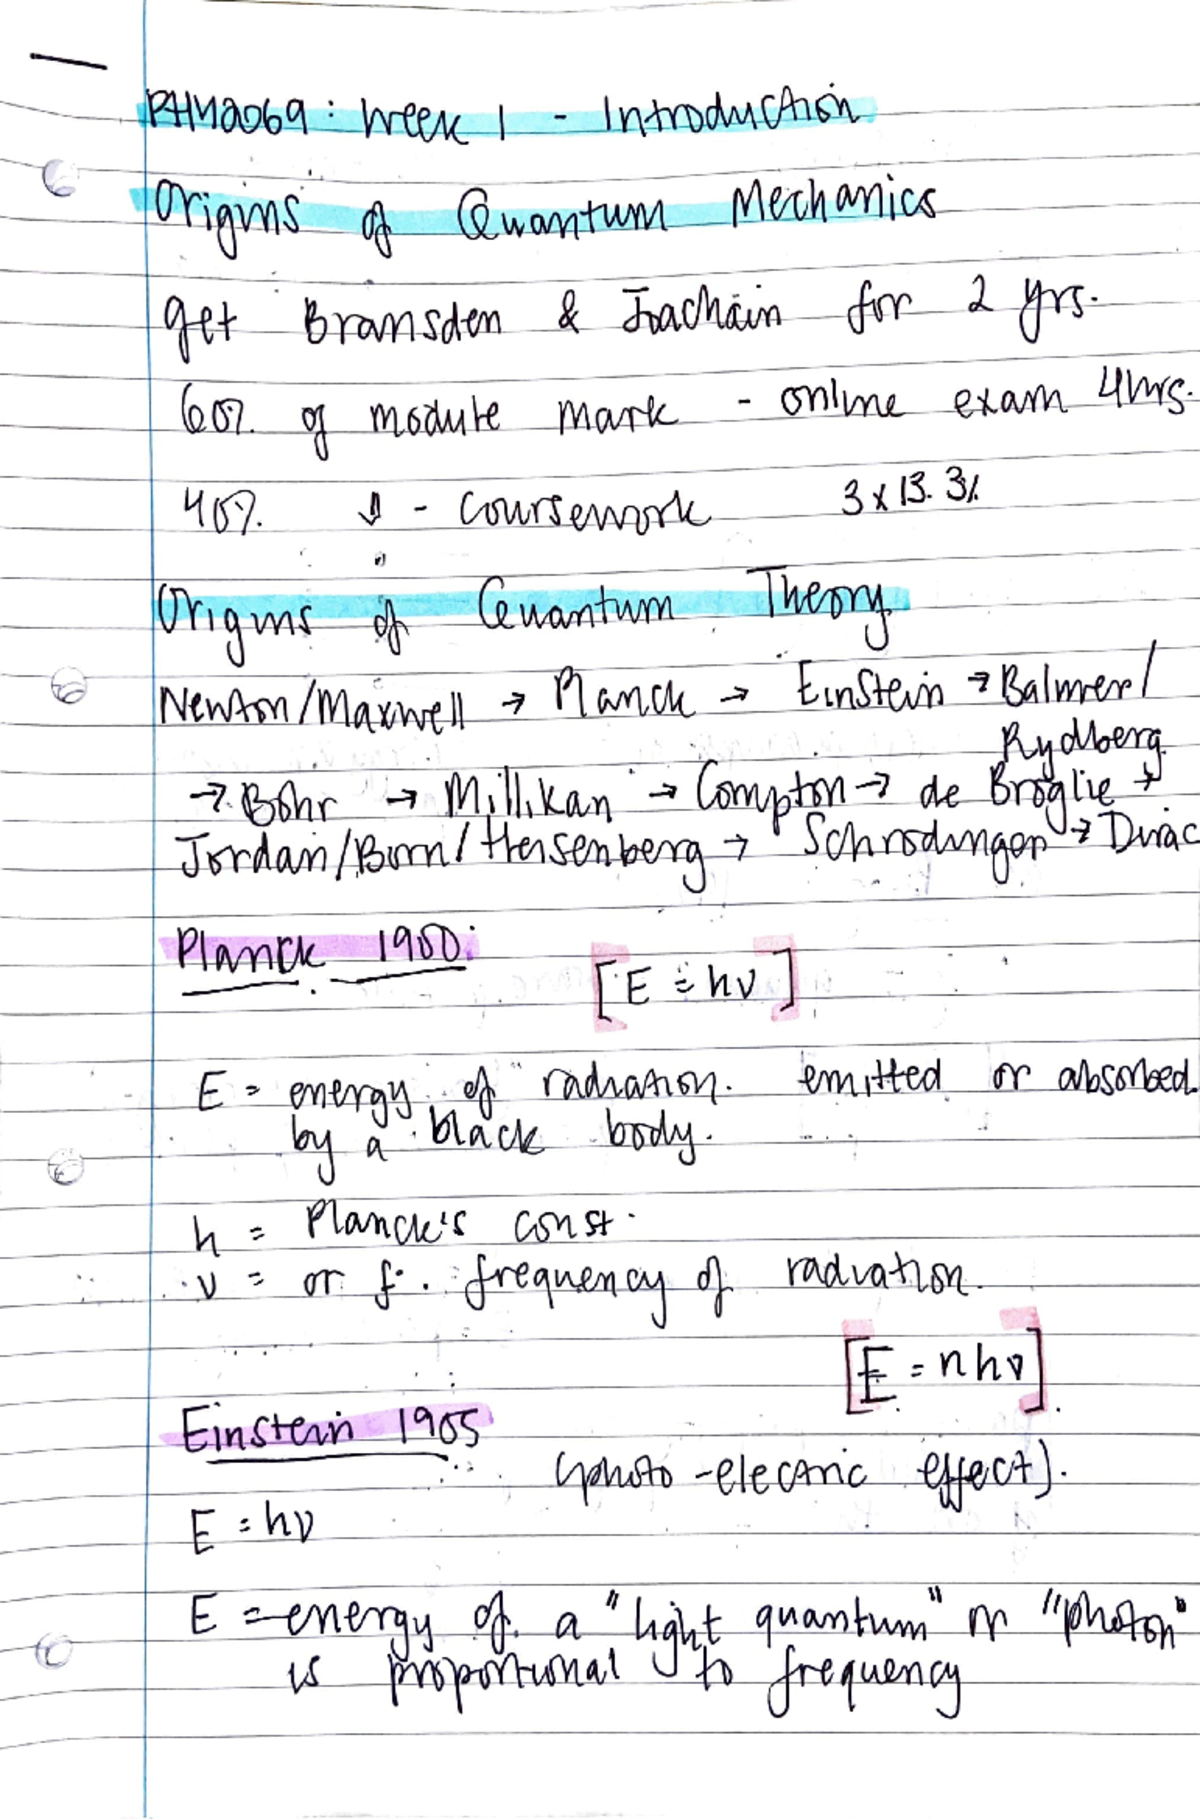 PHY2069: Week 1 - Introduction
Origins of Quantum Mechanics
get Bransden & Joachain for 2 yrs.
60% of module mark - online exam 4hrs.
40% ↓ - coursework 3 x 13.3%
Origins of Quantum Theory
Newton/Maxwell → Planck → Einstein → Balmer/
Rydberg
→ Bohr → Millikan → Compton → de Broglie →
Jordan/Born/Heisenberg → Schrodinger → Dirac
Planck 1900:
[E = hν]
E = energy of radiation. emitted or absorbed
by a black body.
h = Planck's const.
ν = or f. frequency of radiation.
[E = nhν].
Einstein 1905
(photo-electric effect).
E = hν
E = energy of a "light quantum" or "photon"
is proportional to frequency